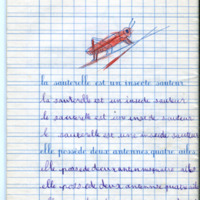 la sauterelle est un insecte sauteur
la sauterelle est un insecte sauteur
la sauterelle est une insecte sauteur
le sauterelle est une insecte sauteur
elle possède deux antennes quatre ailes
elle possède deux antennes quatre ailes
elle possède deux antenne quatre